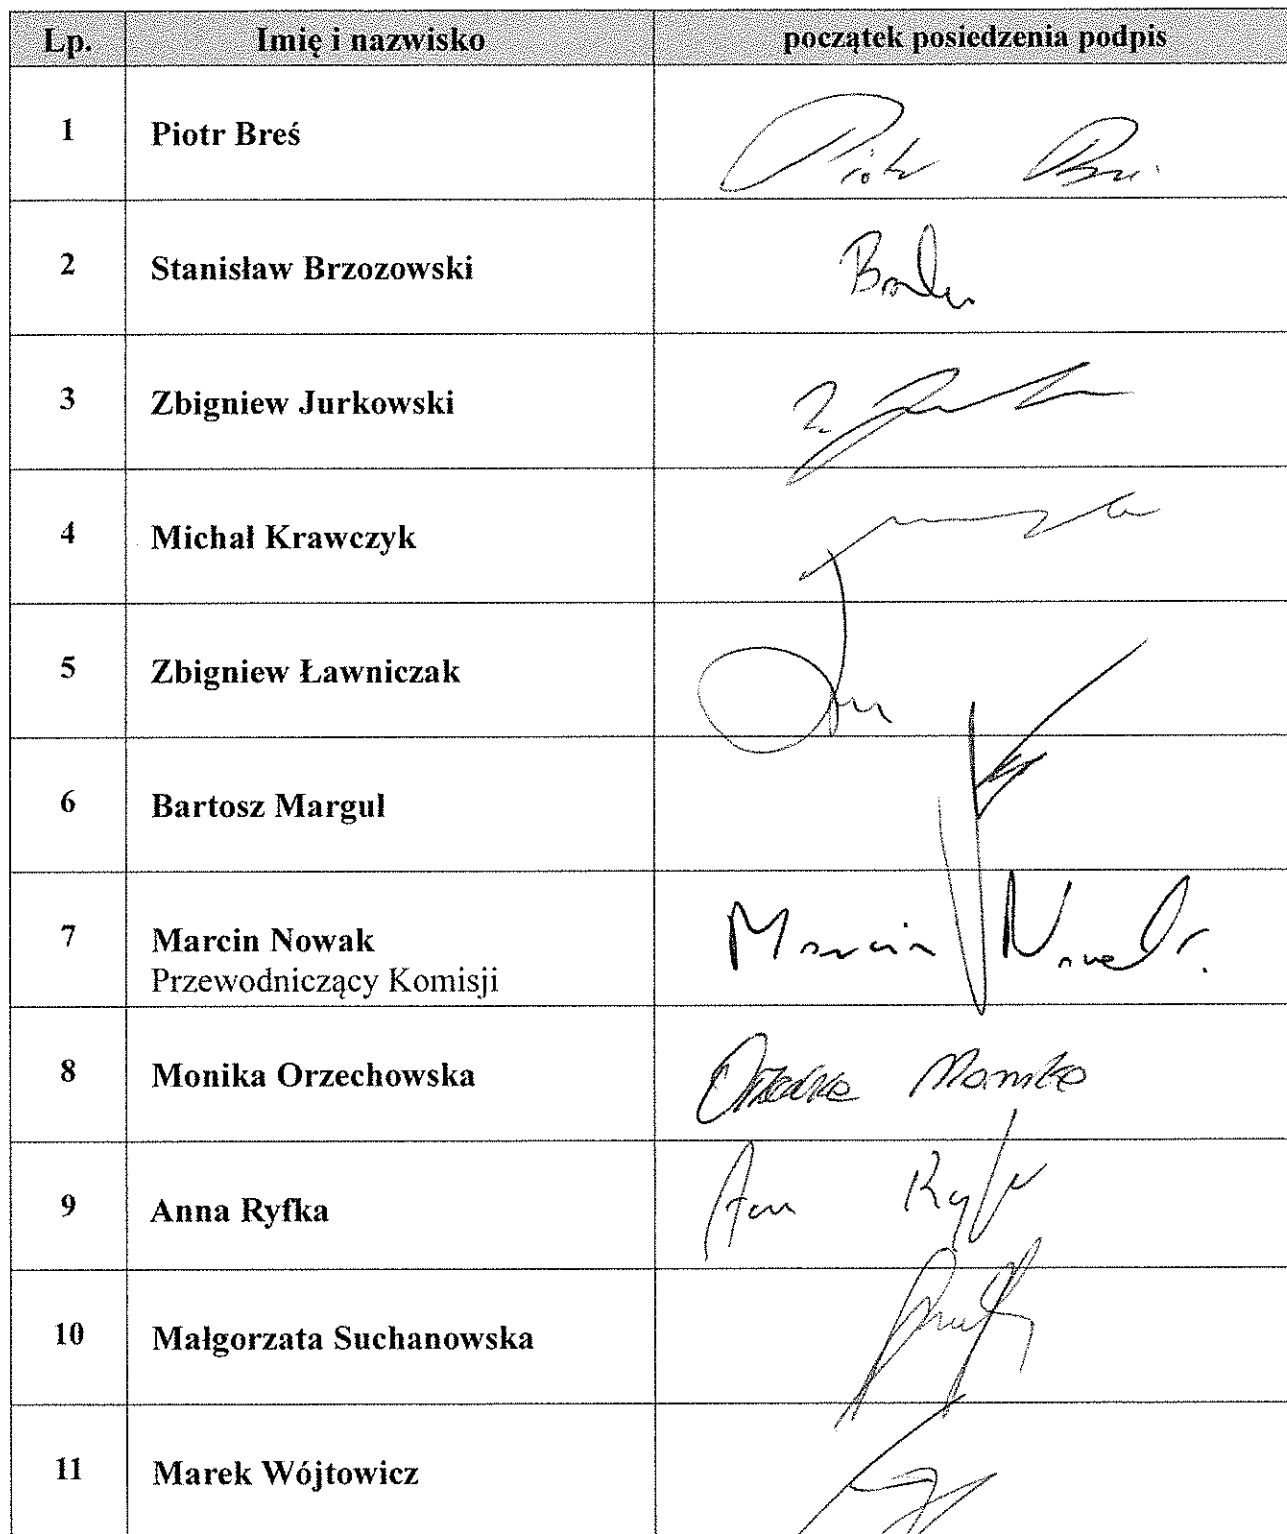 Lp. Imię i nazwisko początek posiedzenia podpis
1 Piotr Breś Piotr
2 Stanisław Brzozowski
3 Zbigniew Jurkowski
4 Michał Krawczyk
5 Zbigniew Ławniczak
6 Bartosz Margul
7 Marcin Nowak Marcin Nowak
Przewodniczący Komisji
8 Monika Orzechowska Monika
9 Anna Ryfka
10 Małgorzata Suchanowska
11 Marek Wójtowicz